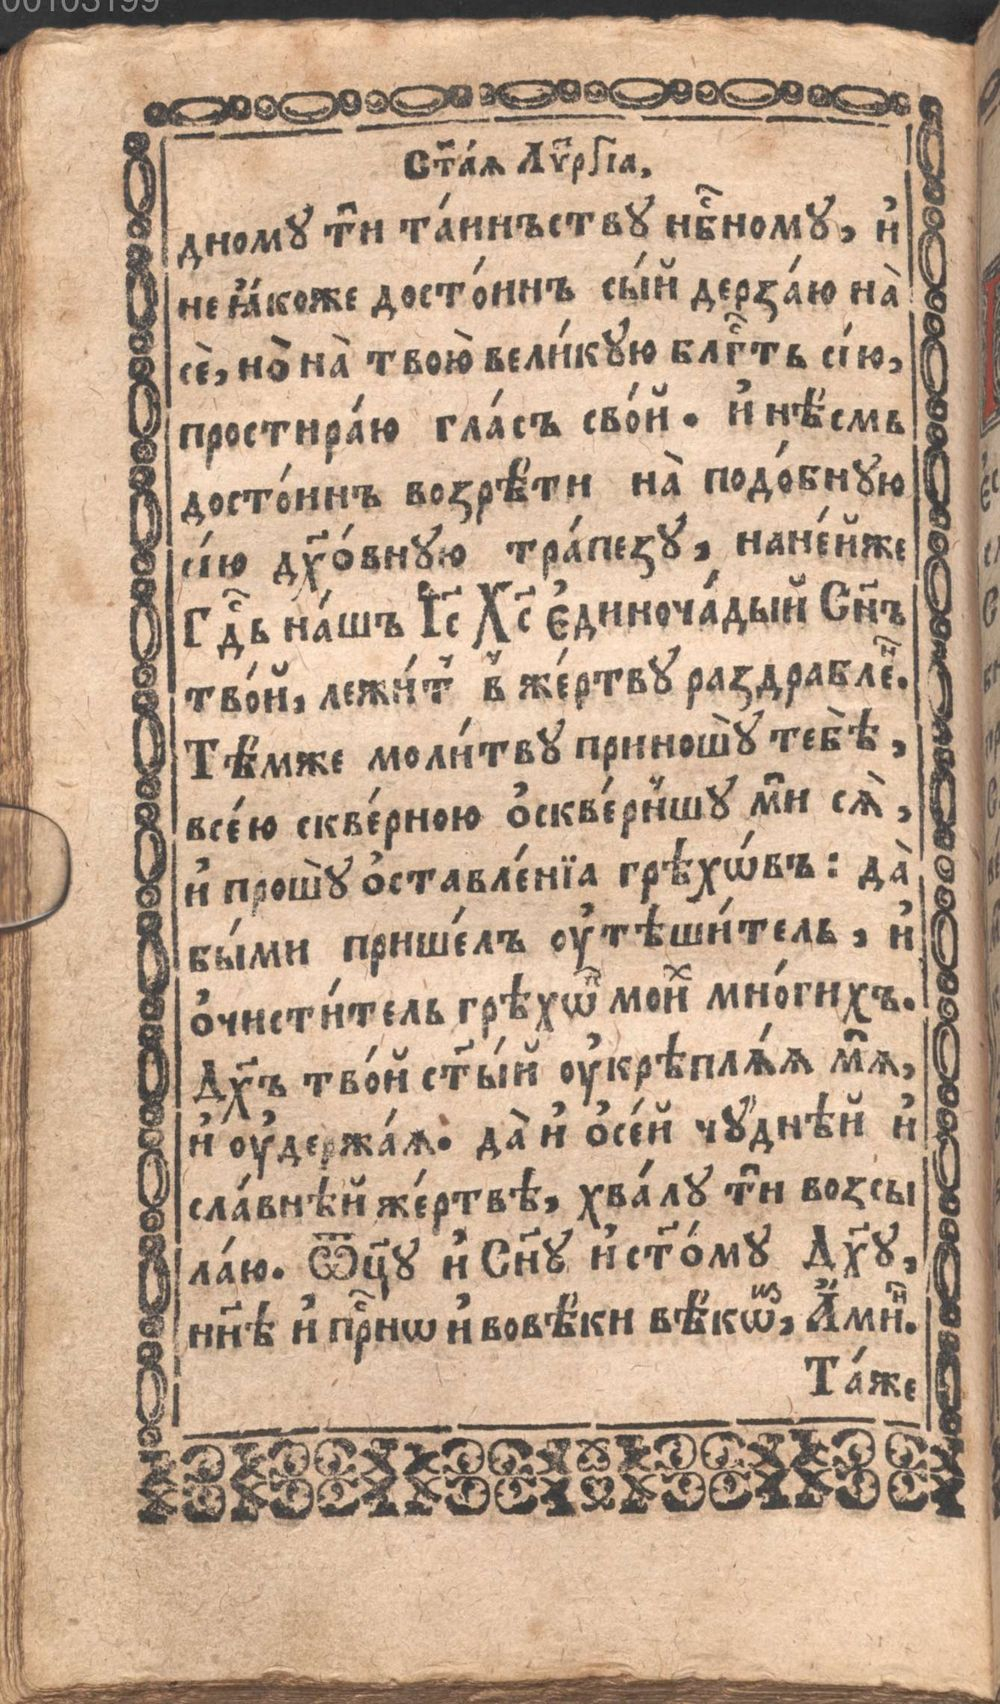 00103199
Ст҃а́ѧ Лѵⷮргіа,
дному тѝ та́инъству нб҇ному, и҆
не ꙗ҆́коже досто́инъ сы́й дерꙁа́ю на̀
сѐ, но̀ на̀ твою̀ вели́кую блг҇ть сі́ю,
простира́ю гла́съ сво́й. и҆ нѣ́смь
досто́инъ воꙁрѣ́ти на̀ подо́бную
сі́ю дх҃о́вную тра́пеꙁу, нане́йже
Гд҇ь на́шъ І҆с҃ Хс҃ є҆диноча́дый Сн҃ъ
тво́й, лежи́т̾ в̾ же́ртву раꙁдраблеⷩ҇.
Тѣ́мже моли́тву приношꙋ̀ тебѣ̀,
все́ю скве́рною ѡ҆скве́рншу мѝ сѧ̀,
и҆ прошꙋ̀ ѡ҆ставле́нїа грѣхѡ́въ: да̀
бы́ми прише́лъ ѹ҆тѣши́тель, и҆
о҆чисти́тель грѣхѡⷡ҇ моиⷯ мно́гихъ.
Дх҃ъ тво́й ст҃ы́й ѹ҆крѣплѧ́ѧ мѧ̀,
и҆ ѹ҆держа́ѧ. да̀ и҆ о҆се́й чу́днѣй и҆
сла́внѣй же́ртвѣ, хва́лу тѝ воꙁсы
ла́ю. Ѿц҃у и҆ Сн҃у и҆ ст҃о́му Дх҃у,
нн҃ѣ и҆ пр҇нѡ и҆ вовѣ́ки вѣ́кѡⷡ, А҆́миⷩ҇.
Та́же